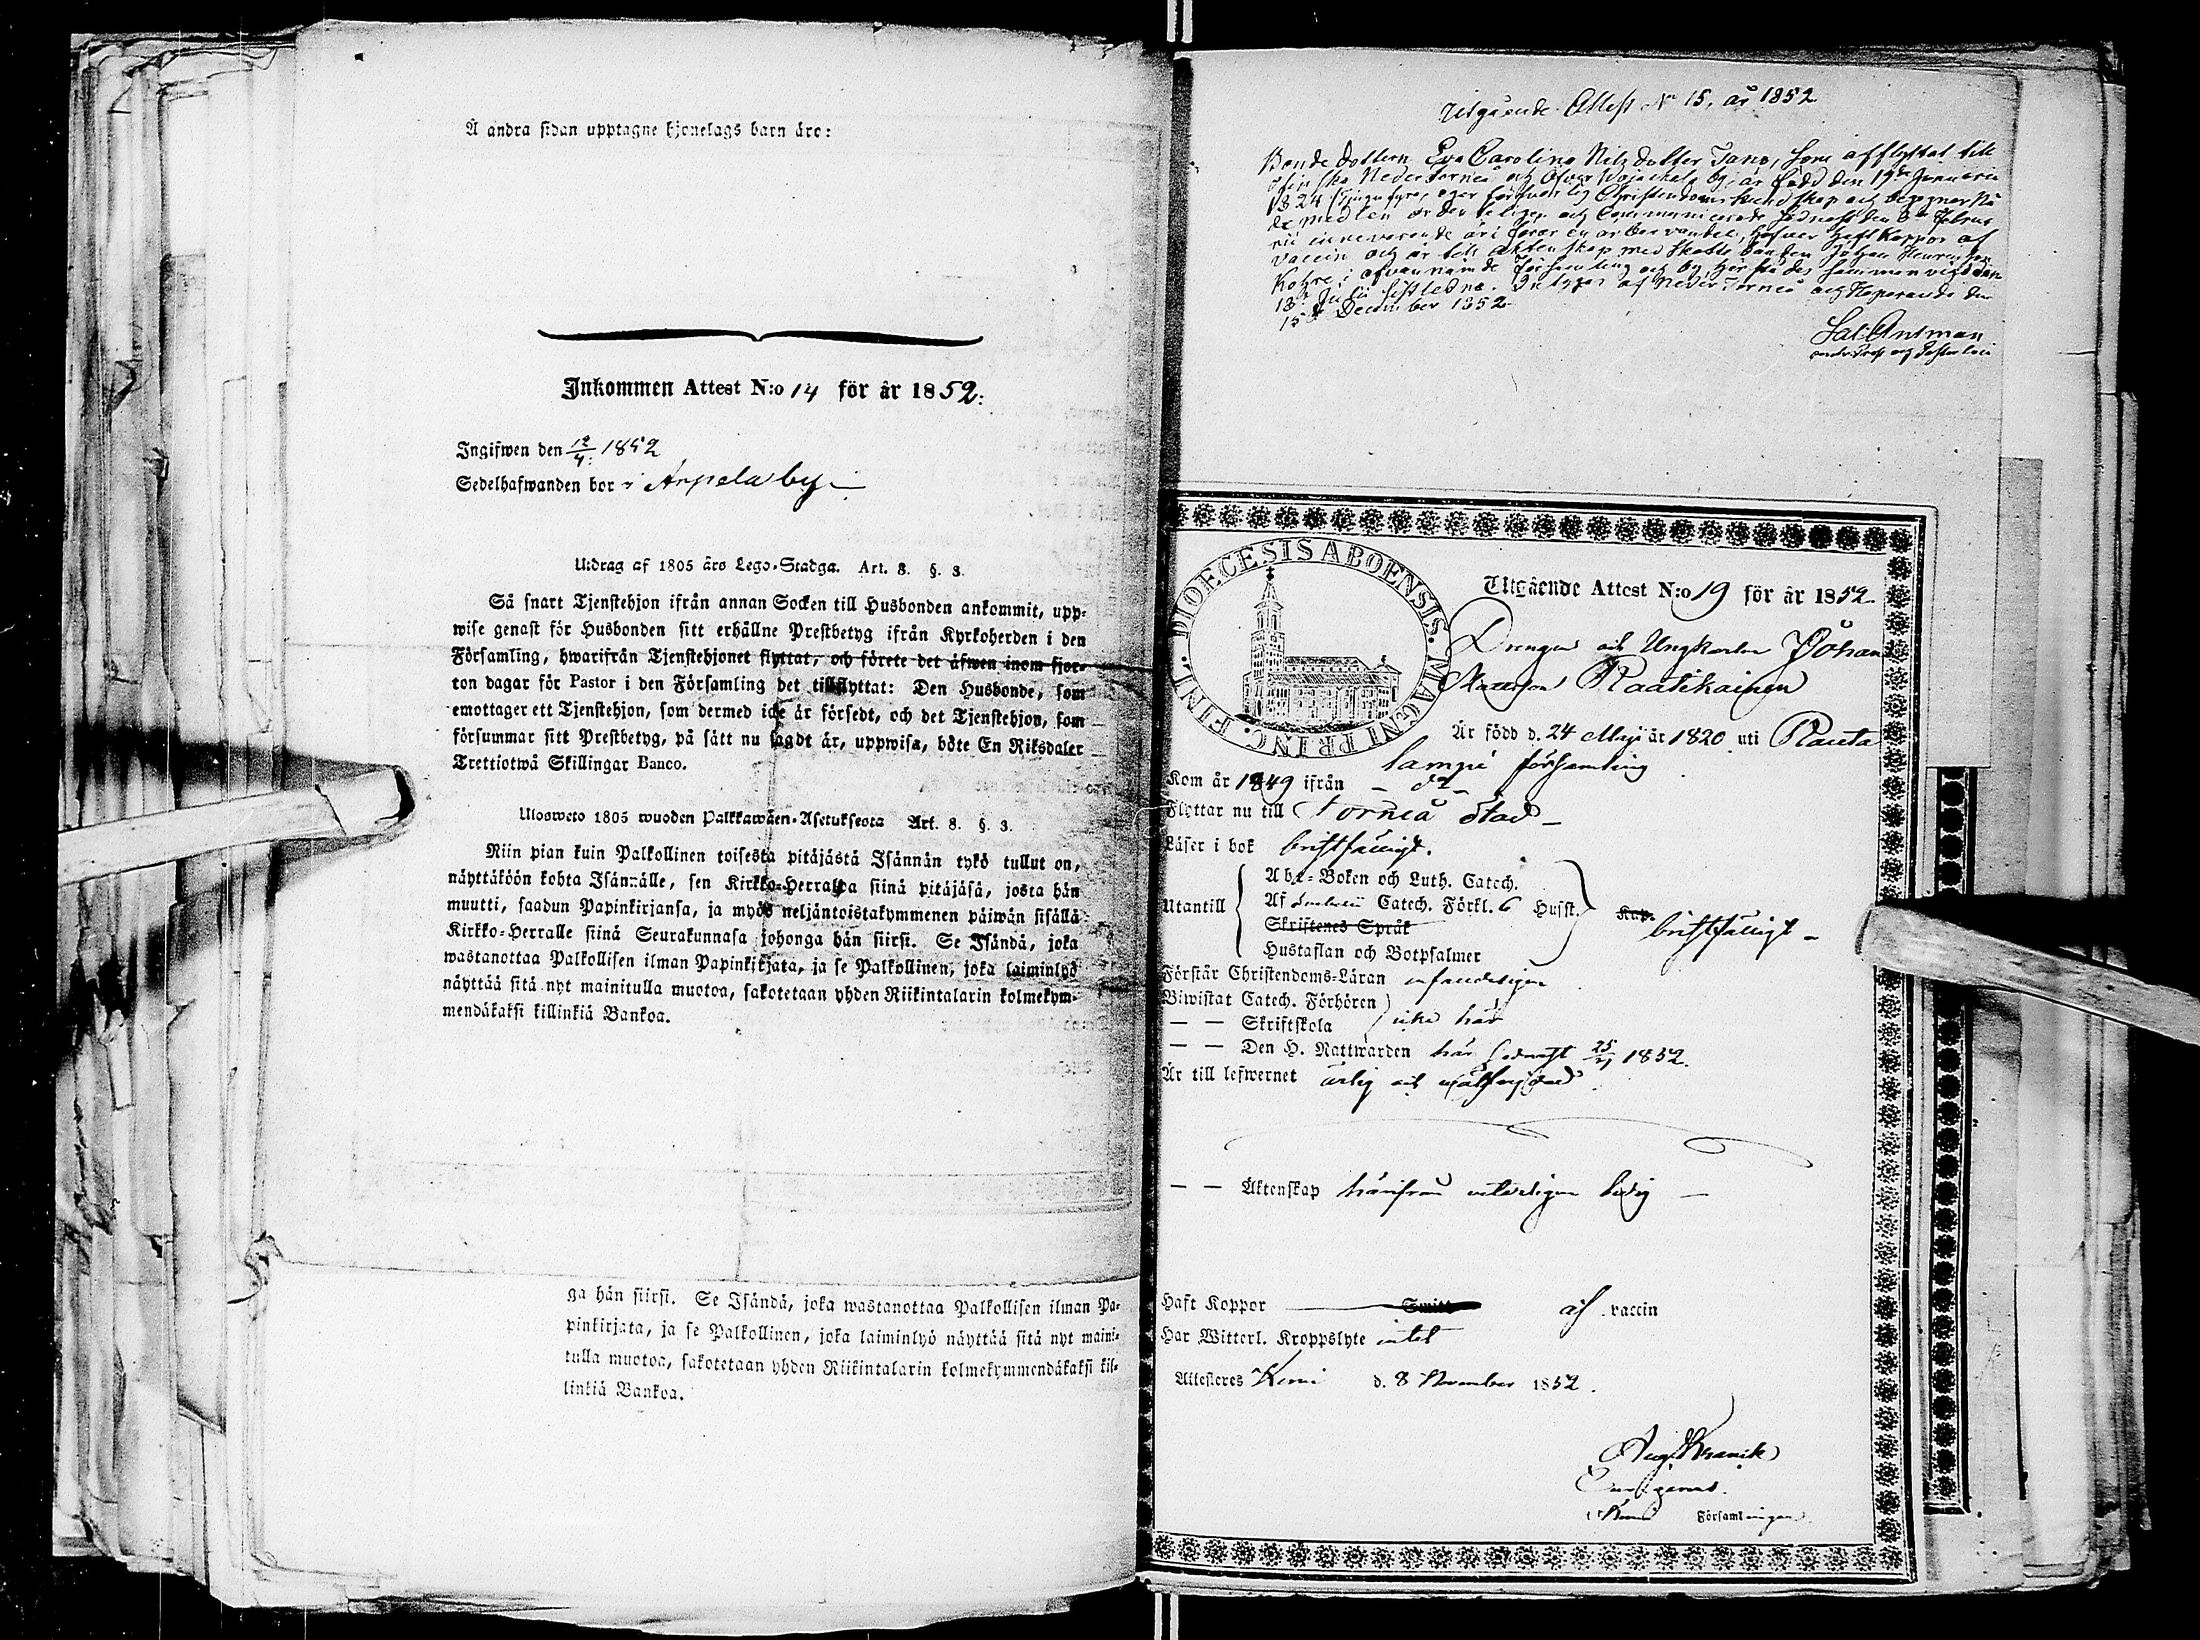 Å andra sidan upptagne hjonelags barn äro:
Inkommen Attest N:o 14 för år 1852.
Ingifwen den 12/4. 1852
Sedelhafwanden bor i Arpela by
Utdrag af 1805 års Lego-Stadga. Art. 8. §. 3.
Så snart Tjenstehjon ifrån annan Socken till Husbonden ankommit, upp-
wise genast för Husbonden sitt erhållne Prestbetyg ifrån Kyrkoherden i den
Församling, hwarifrån Tjenstehjonet flyttat, och förete det äfwen inom fjor-
ton dagar för Pastor i den Församling det tillflyttat: Den Husbonde, som
emottager ett Tjenstehjon, som dermed icke är försedt, och det Tjenstehjon, som
försummar sitt Prestbetyg, på sätt nu sagdt är, uppwisa, böte En Riksdaler
Trettiotwå Skillingar Banco.
Ulosweto 1805 wuoden Palkkawäen-Asetuksesta Art. 8. §. 3.
Niin pian kuin Palkollinen toisesta pitäjästä Isännän tykö tullut on,
näyttäköön kohta Isännälle, sen Kirkko-Herralta siinä pitäjäsä, josta hän
muutti, saadun Papinkirjansa, ja myös neljäntoistakymmenen päiwän sisällä
Kirkko-Herralle siinä Seurakunnasa johonga hän siirsi. Se Isändä, joka
wastanottaa Palkollisen ilman Papinkirjata, ja se Palkollinen, joka laiminlyö
näyttää sitä nyt mainitulla muotoa, sakotetaan yhden Riikintalarin kolmekym-
mendäkaksi killinkiä Bankoa.
ga hän siirsi. Se Isändä, joka wastanottaa Palkollisen ilman Pa-
pinkirjata, ja se Palkollinen, joka laiminlyö näyttää sitä nyt maini-
tulla muotoa, sakotetaan yhden Riikintalarin kolmekymmendäkaksi kil-
linkiä Bankoa.
Utgående Attest No 15, år 1852
Bonde dottern Eva Carolina Nilsdotter Jano, som afflyttat till
Finska Nedertorneå och Öfver Wojackala by, är född den 19de Januarii
1824 tjugufyra, eger försvarlig Christendoms kundskap och begagnar Nå
demedlen ordenteligen och Communicerade sednast den 8de Februa
rii innevarande år; förer en ärbar vandel, hafver haft Koppor af
vaccin och är till äktenskap med Skattebonden Johan Henriksson
Kohre i ofvannämde församling och by, härstädes sammanvigd den
18de Julii sistledne. Betygar af Neder Torneå och Haparanda den
15de December 1852.
Sal. Antman
DIOECESIS ABOENSIS. MAGNI PRINC. FINL.
Utgående Attest N:o 19 för år 1852.
Drengen och Ungkarlen Johan
Mattsson Raatikainen
Är född d. 24 Maji år 1820 uti Rauta
lampi församling
Kom år 1849 ifrån — do —
Flyttar nu till Torneå Stad —
Läser i bok bristfälligt.
Utantill
Abc-Boken och Luth. Catech.
Af Catech. Förkl. 6 Hufst.
Skriftenes Språk
Hustaflan och Botpsalmer
Kap.
bristfälligt —
Förstår Christendoms-Läran
Biwistat Catech. Förhören
— — Skriftskola
icke här
— — Den H. Nattwarden här sednast 25/ 1852.
Är till lefwernet ärlig och
— — Äktenskap härifrån veterligen ledig —
Haft Koppor Smitt af vaccin
Har Witterl. Kroppslyte intet
Attesteres Kemi d. 8 November 1852.
Kemi Församlingen